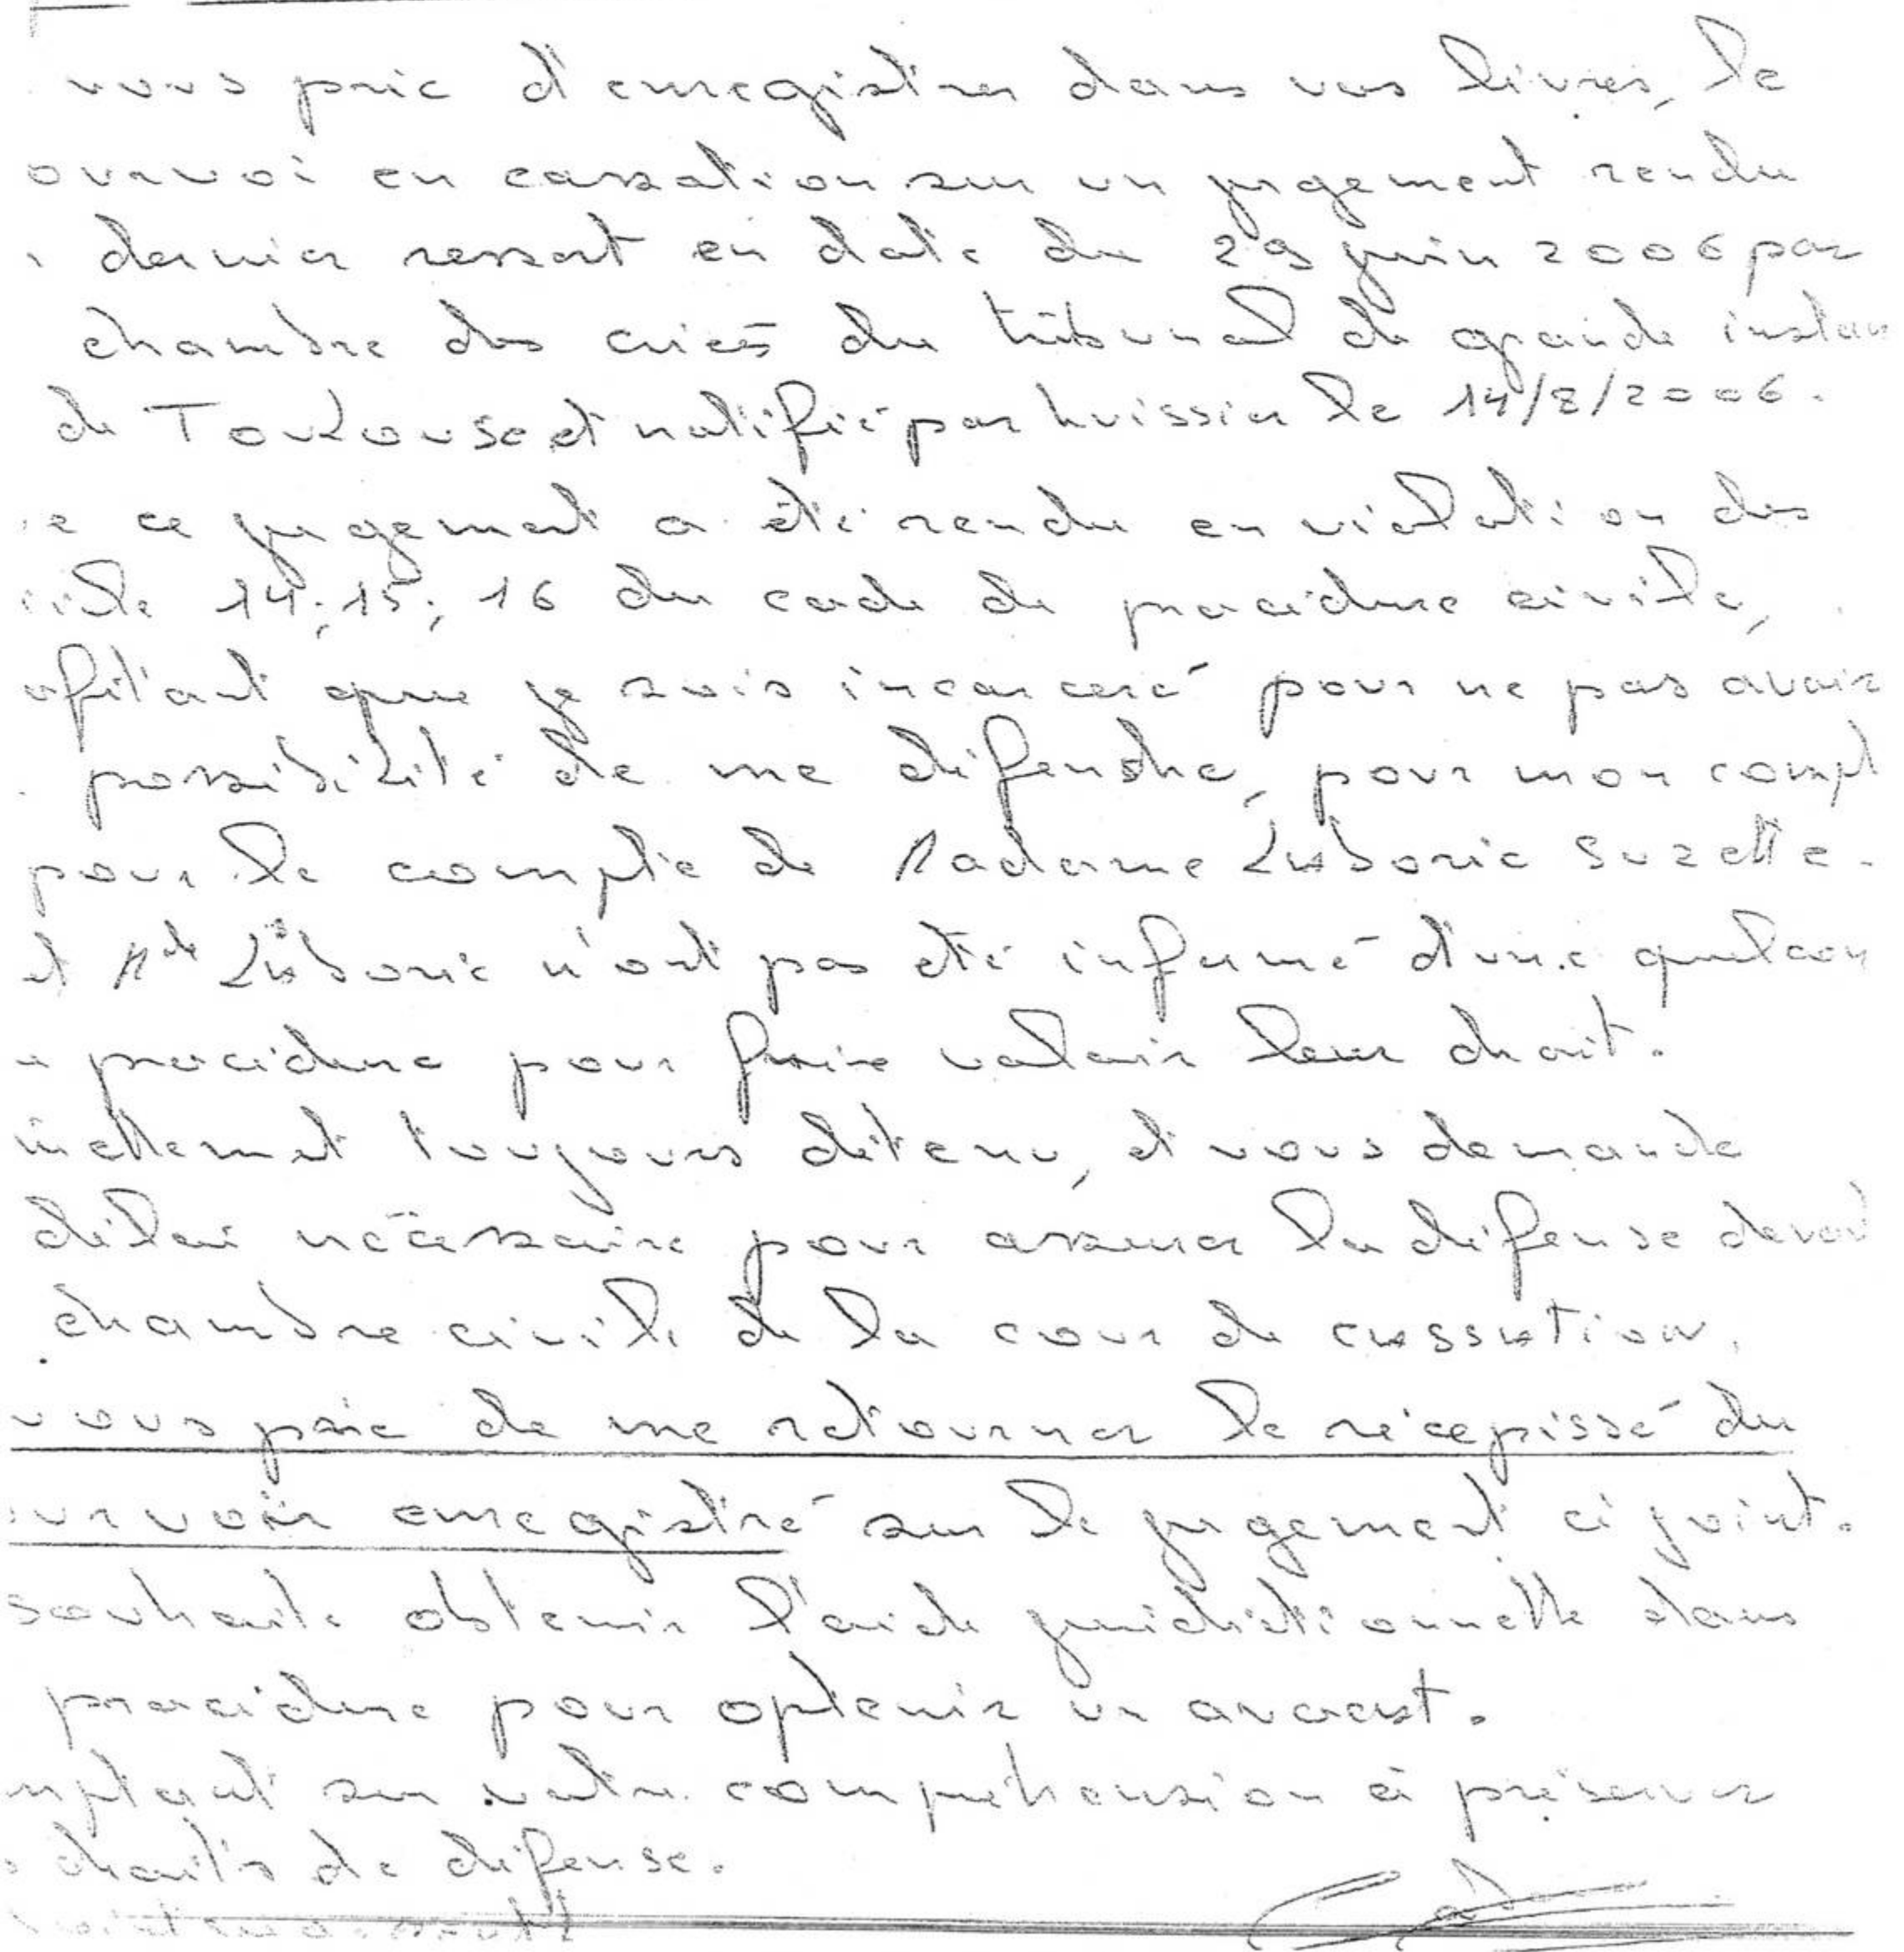 vous prie d'enregistrer dans vos livres, le
ourvoi en cassation sur un jugement rendu
dernier ressort en date du 29 juin 2006 par
chambre des criés du tribunal de grande instan
de Toulouse et notifié par huissier le 14/8/2006.
e ce jugement a été rendu en violation des
icle 14; 15; 16 du code de procédure civile,
ofitant que je suis incarceré pour ne pas avoir
possibilité de me défendre, pour mon compt
pour le compte de Madame Laborie Suzette.
et Mde Laborie n'ont pas été informé d'une quelcon
e procédure pour faire valoir leur droit.
uellemnt toujours détenu, et vous demande
délai nécessaire pour assurer la défense devant
chambre civile de la cour de cassation.
vous prie de me retourner le récepissé du
ourvoir enregistré sur le jugement ci joint.
souhaite obtenir l'aide juridictionnelle dans
procédure pour optenir un avocat.
mptant sur votre compréhension à préserver
droits de défense.